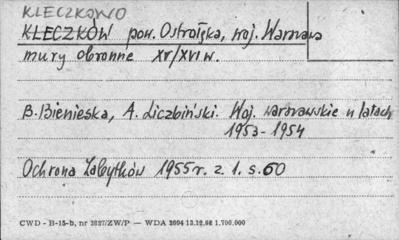 KLECZKOWO
KLECZKÓW pow. Ostrołęka, woj. Warszawa
mury obronne XV/XVI w.
B. Bienieska, A. Liczbiński. Woj. warszawskie w latach
1953-1954
Ochrona Zabytków 1955 r. z. 1. s. 60
CWD - B-15-b, nr 2827/ZW/P — WDA 2004 13.12.68 1.700.000